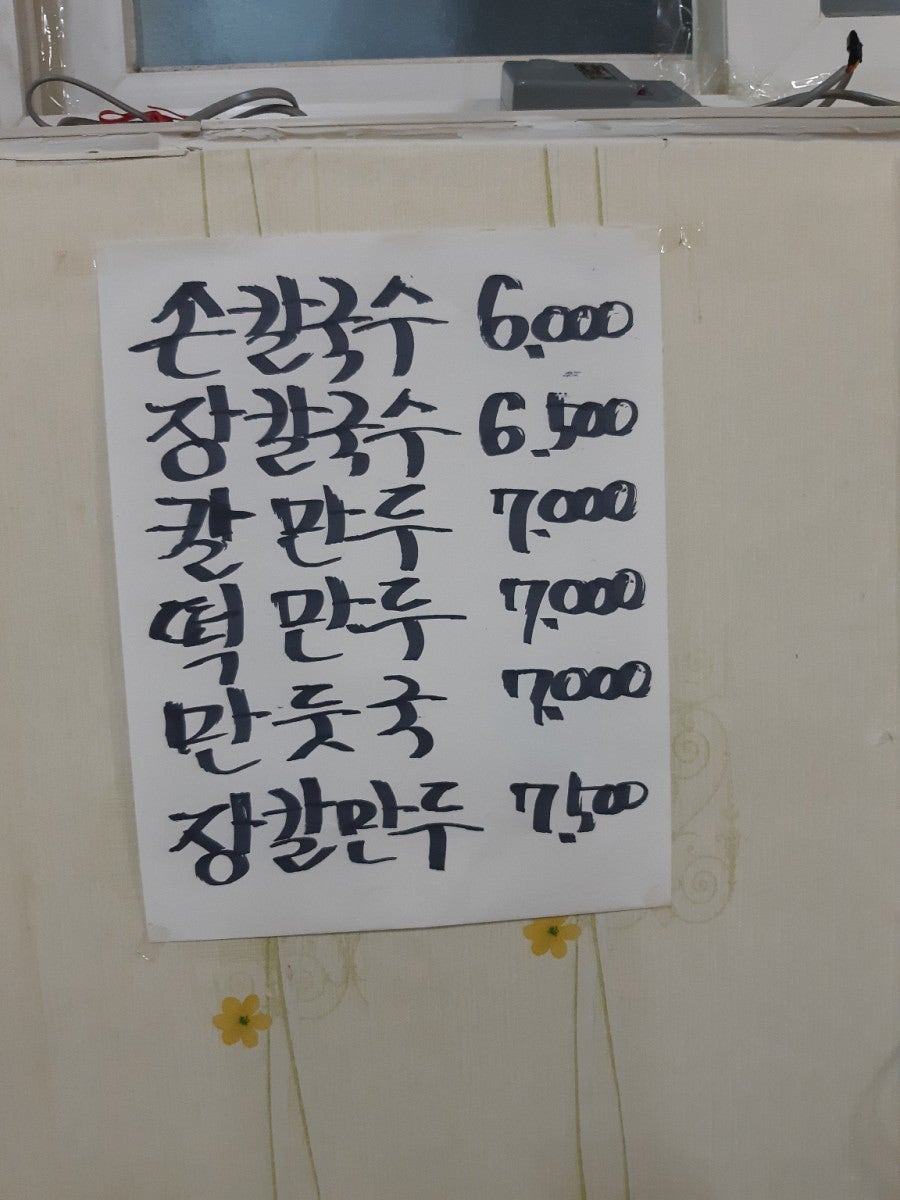 손칼국수 6,000
장칼국수 6,500
칼만두 7,000
떡만두 7,000
만둣국 7,000
장칼만두 7,500